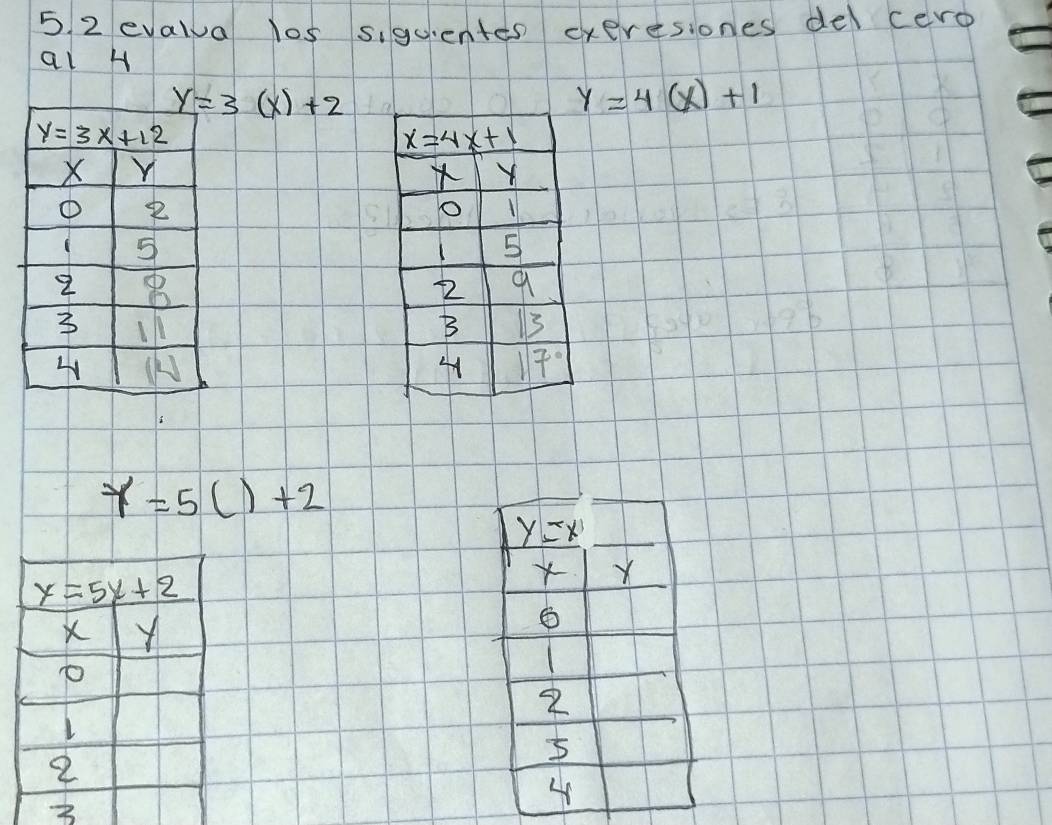 5.2 evalua los siguientes experesiones del cero
al 4
Y=3(x)+2
Y=4(x)+1
Y=3x+12
X Y
0 2
1 5
2 8
3 11
4 14
x=4x+1
x y
0 1
1 5
2 9
3 13
4 17
Y=5( )+2
y=5x+2
x y
0
1
2
3
y=x
x y
0
1
2
3
4